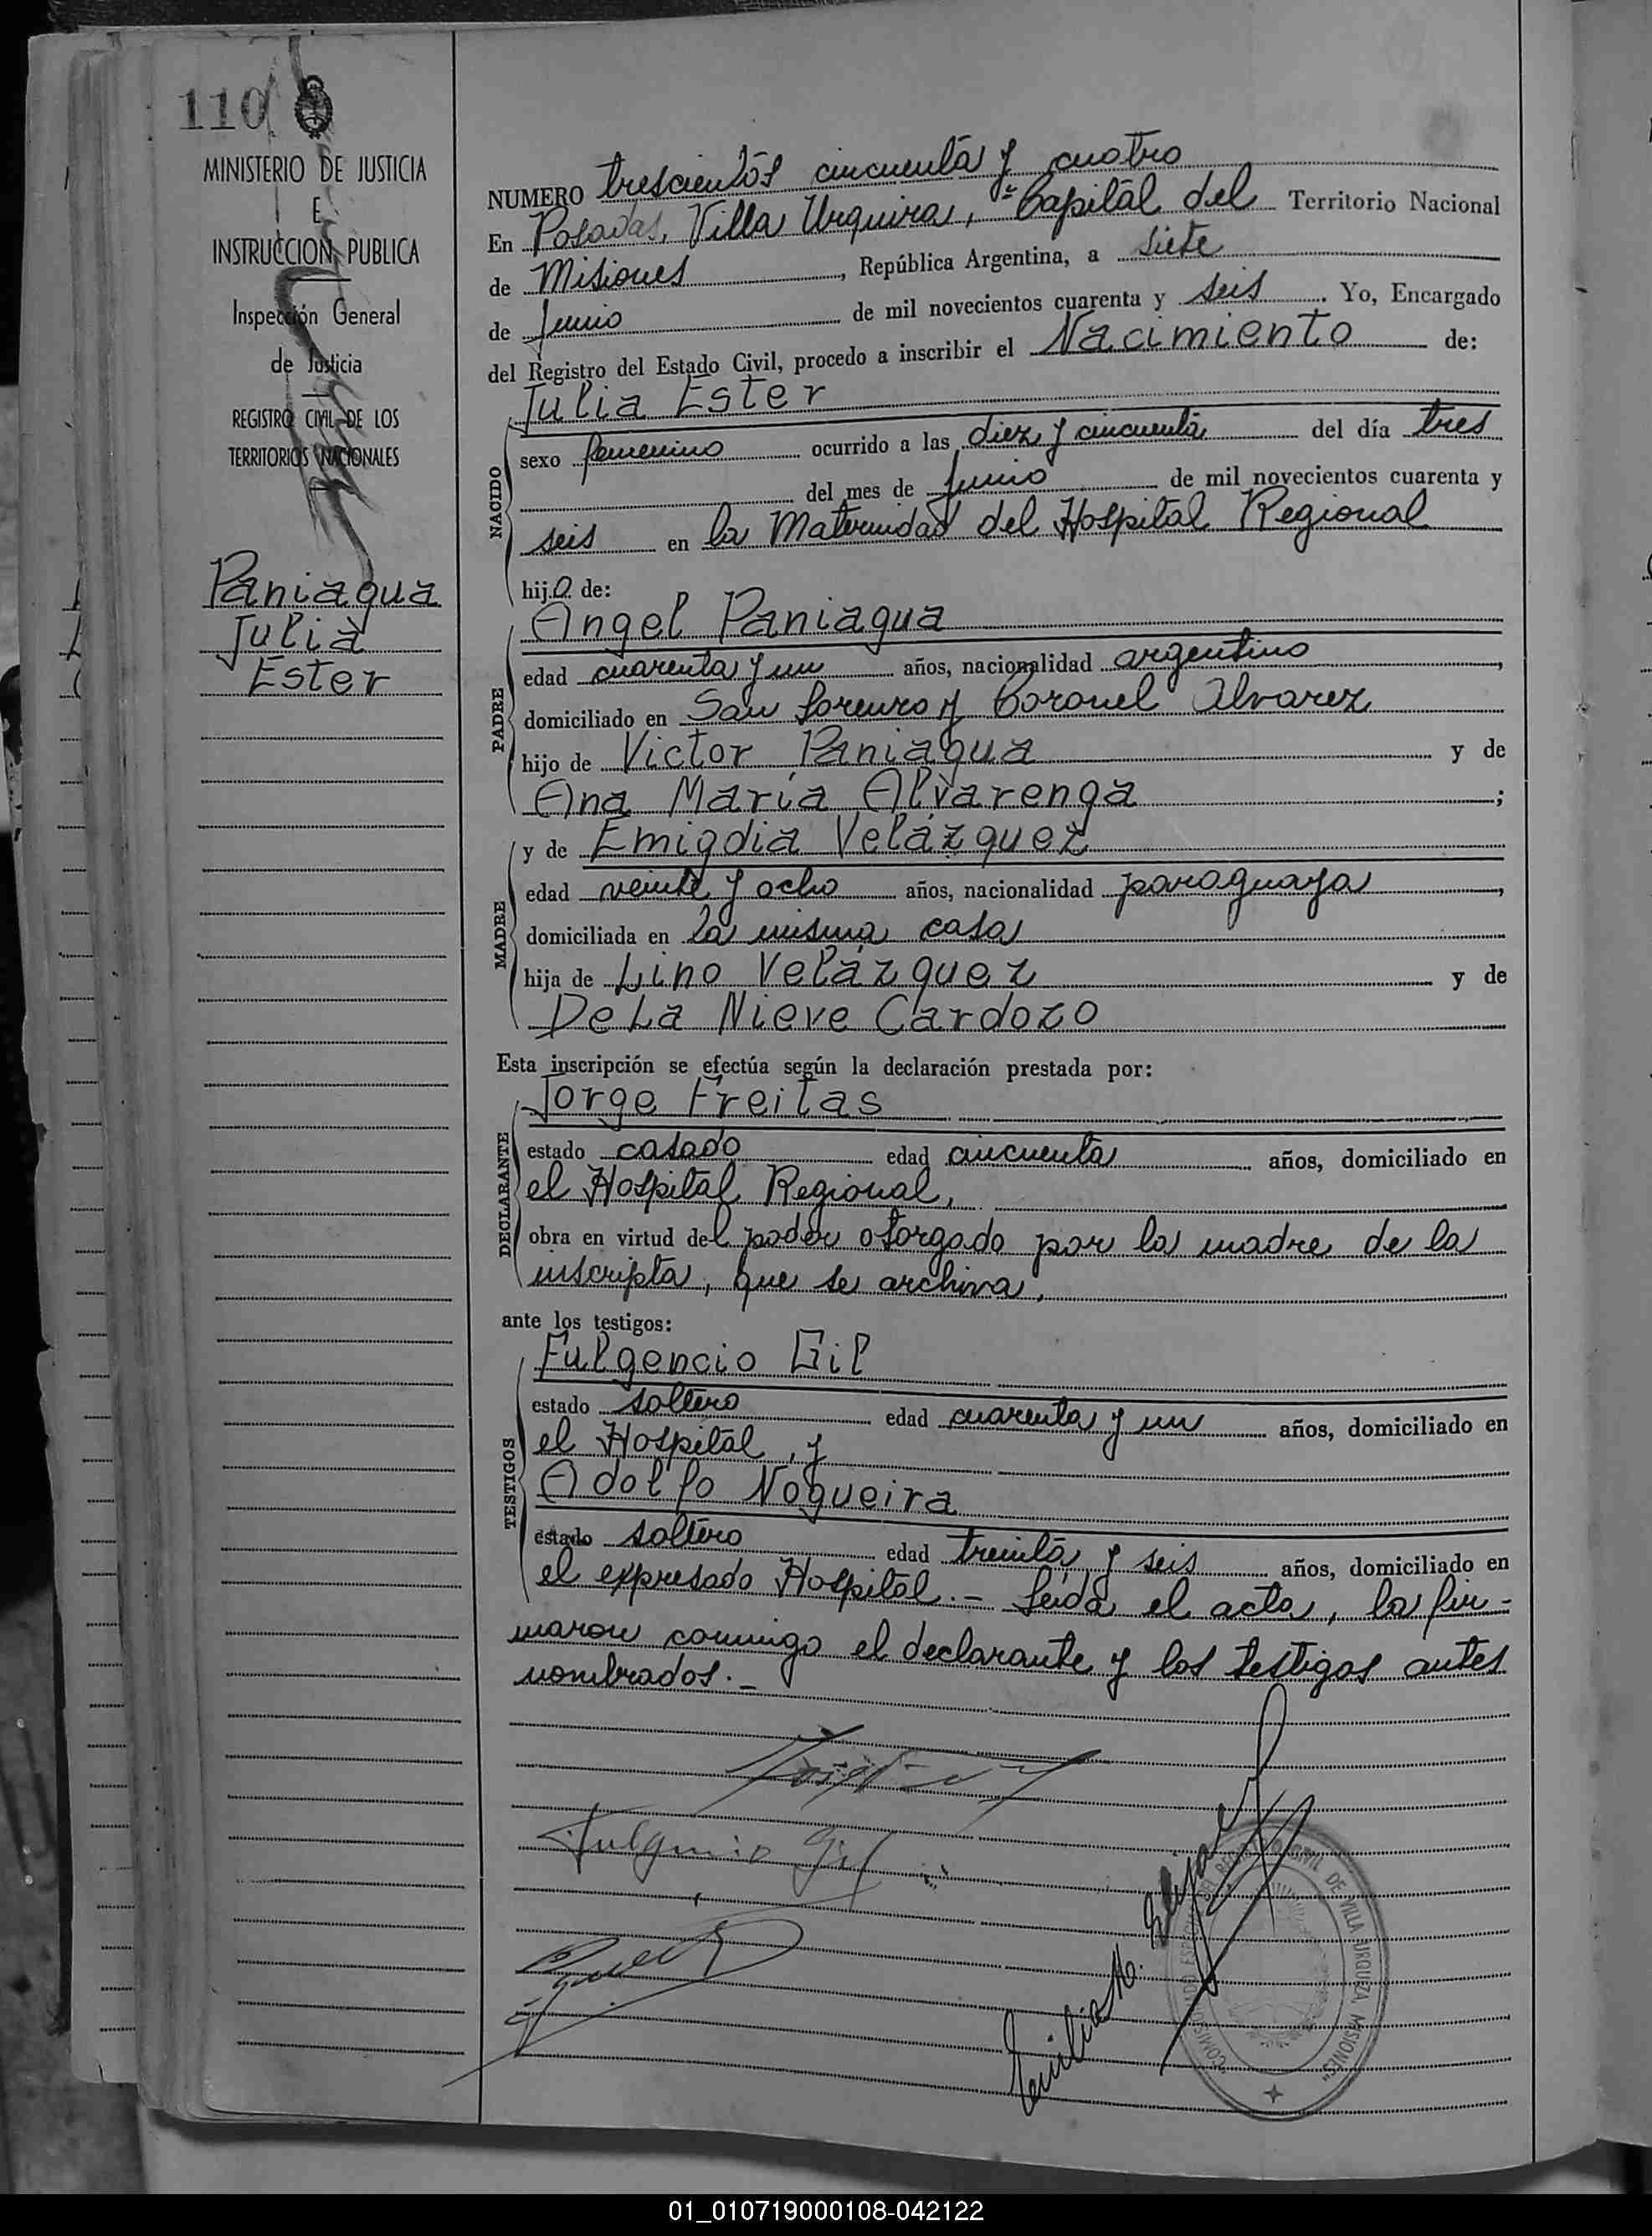 110
MINISTERIO DE JUSTICIA
E
INSTRUCCION PUBLICA
Inspección General
de Justicia
REGISTRO CIVIL DE LOS
TERRITORIOS NACIONALES
Paniagua
Julia
Ester
NUMERO trescientos cincuenta y cuatro
En Posadas, Villa Urquiza, Capital del Territorio Nacional
de Misiones, República Argentina, a siete
de Junio de mil novecientos cuarenta y seis. Yo, Encargado
del Registro del Estado Civil, procedo a inscribir el Nacimiento de:
Julia Ester
NACIDO
sexo femenino ocurrido a las diez y cincuenta del día tres
del mes de Junio de mil novecientos cuarenta y
seis en la Maternidad del Hospital Regional
hija de:
Angel Paniagua
PADRE
edad cuarenta y un años, nacionalidad argentino,
domiciliado en San Lorenzo y Coronel Alvarez
hijo de Victor Paniagua y de
Ana María Alvarenga;
y de Emigdia Velázquez
MADRE
edad veinte y ocho años, nacionalidad paraguaya,
domiciliada en la misma casa
hija de Lino Velázquez y de
De La Nieve Cardozo
Esta inscripción se efectúa según la declaración prestada por:
Jorge Freitas
DECLARANTE
estado casado edad cincuenta años, domiciliado en
el Hospital Regional,
obra en virtud del poder otorgado por la madre de la
inscripta, que se archiva.
ante los testigos:
Fulgencio Gil
TESTIGOS
estado soltero edad cuarenta y un años, domiciliado en
el Hospital, y
Adolfo Nogueira
estado soltero edad treinta y seis años, domiciliado en
el expresado Hospital.- Leída el acta, la fir-
maron conmigo el declarante y los testigos antes
nombrados.-
Fulgencio Gil
Emilia M.
DEL REGISTRO CIVIL DE VILLA URQUIZA, MISIONES"
01_010719000108-042122